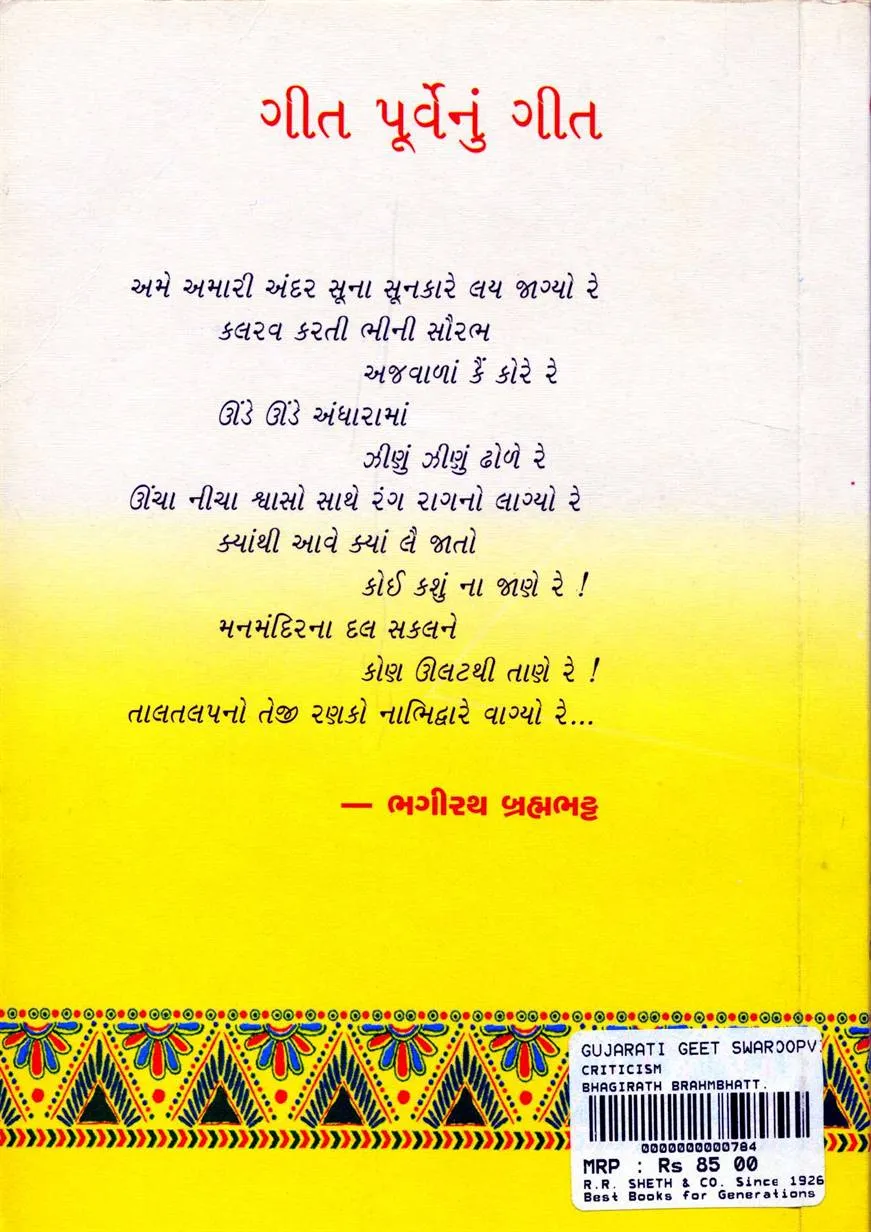 ગીત પૂર્વેનું ગીત
અમે અમારી અંદર સૂના સૂનકારે લય જાગ્યો રે
કલરવ કરતી ભીની સૌરભ
અજવાળાં કૈં કોરે રે
ઊંડે ઊંડે અંધારામાં
ઝીણું ઝીણું ઢોળે રે
ઊંચા નીચા શ્વાસો સાથે રંગ રાગનો લાગ્યો રે
ક્યાંથી આવે ક્યાં લૈ જાતો
કોઈ કશું ના જાણે રે !
મનમંદિરના દલ સકલને
કોણ ઊલટથી તાણે રે !
તાલતલપનો તેજી રણકો નાભિદ્વારે વાગ્યો રે...
— ભગીરથ બ્રહ્મભટ્ટ
GUJARATI GEET SWAROOPV
CRITICISM
BHAGIRATH BRAHMBHATT.
0000000000784
MRP : Rs 85 00
R.R. SHETH & CO. Since 1926
Best Books for Generations